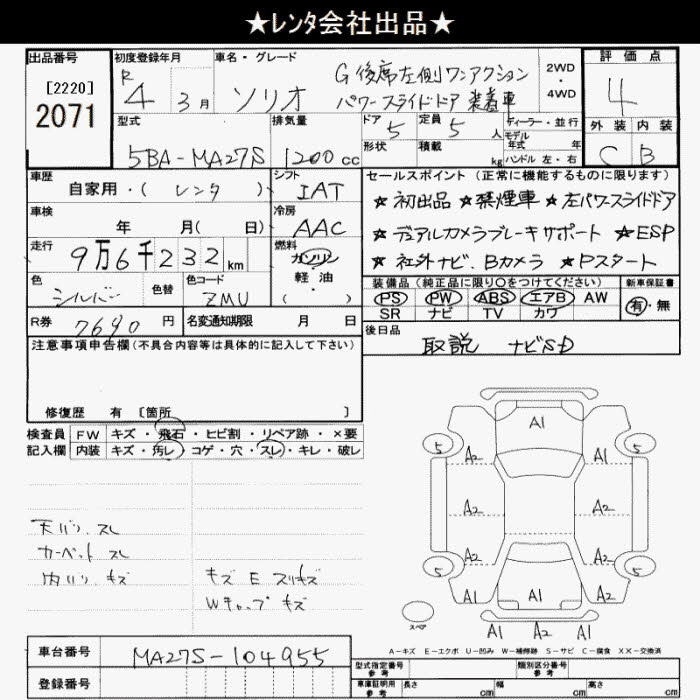 ★レンタ会社出品★
出品番号
[2220]
2071
初度登録年月
R
4 3月
車名・グレード
ソリオ
G 後席左側ワンアクション
パワースライドドア 装着車
2WD
・
4WD
評価点
4
外装 内装
C B
型式
5BA-MA27S
排気量
1200 cc
ドア
5
定員
5 人
形状
積載
kg
ディーラー・並行
モデル
年式 年
ハンドル 左・右
車歴
自家用・( レンタ )
シフト
IAT
車検
年 月( 日)
冷房
AAC
走行
9万6千232km
燃料
ガソリン
軽・油
色
シルバー
色替
色コード
ZMU
R券
7690 円
名変通知期限 月 日
セールスポイント (正常に機能するものに限ります)
★初出品 ★禁煙車 ★左パワースライドドア
★デュアルカメラブレーキサポート ★ESP
★社外ナビ、Bカメラ ★Pスタート
装備品 (純正品に限り○をつけてください)
PS PW ABS エアB AW
SR ナビ TV カワ
新車保証書
有・無
後日品
取説 ナビSD
注意事項申告欄(不具合内容等は具体的に記入して下さい)
修復歴 有 [箇所 ]
検査員
記入欄
FW キズ・飛石・ヒビ割・リペア跡・×要
内装 キズ・汚レ・コゲ・穴・スレ・キレ・破レ
天バリ、スレ
カーペット スレ
内バリ キズ
キズ E スリキズ
Wキャップ キズ
A1
5 A2 A1 5
A2 A2
A2 A2
5 5
A1 A1 A1
スペア
A1 A2 A1
A-キズ E-エクボ U-凹み W-補修跡 S-サビ C-腐食 XX-交換済
車台番号
MA27S-104955
登録番号
型式指定番号
参考
類別区分番号
参考
車庫証明用
参考
長さ cm
幅 cm
高さ cm